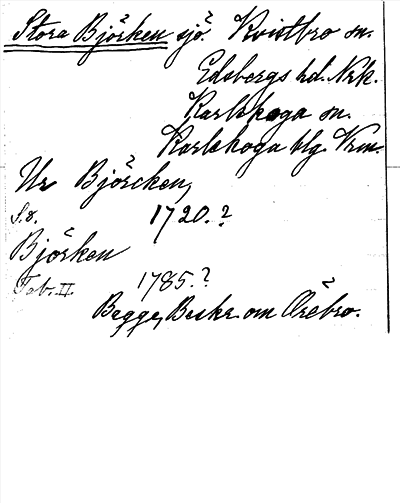 Stora Björken sjö. Kvistbro sn.
Edsbergs hd. Nrk.
Karlskoga sn.
Karlskoga blg. Vrm.
Ur Björcken,
S. 8. 1720.?
Björken
Tab. II. 1785.?
Begge, Beskr. om Örebro.